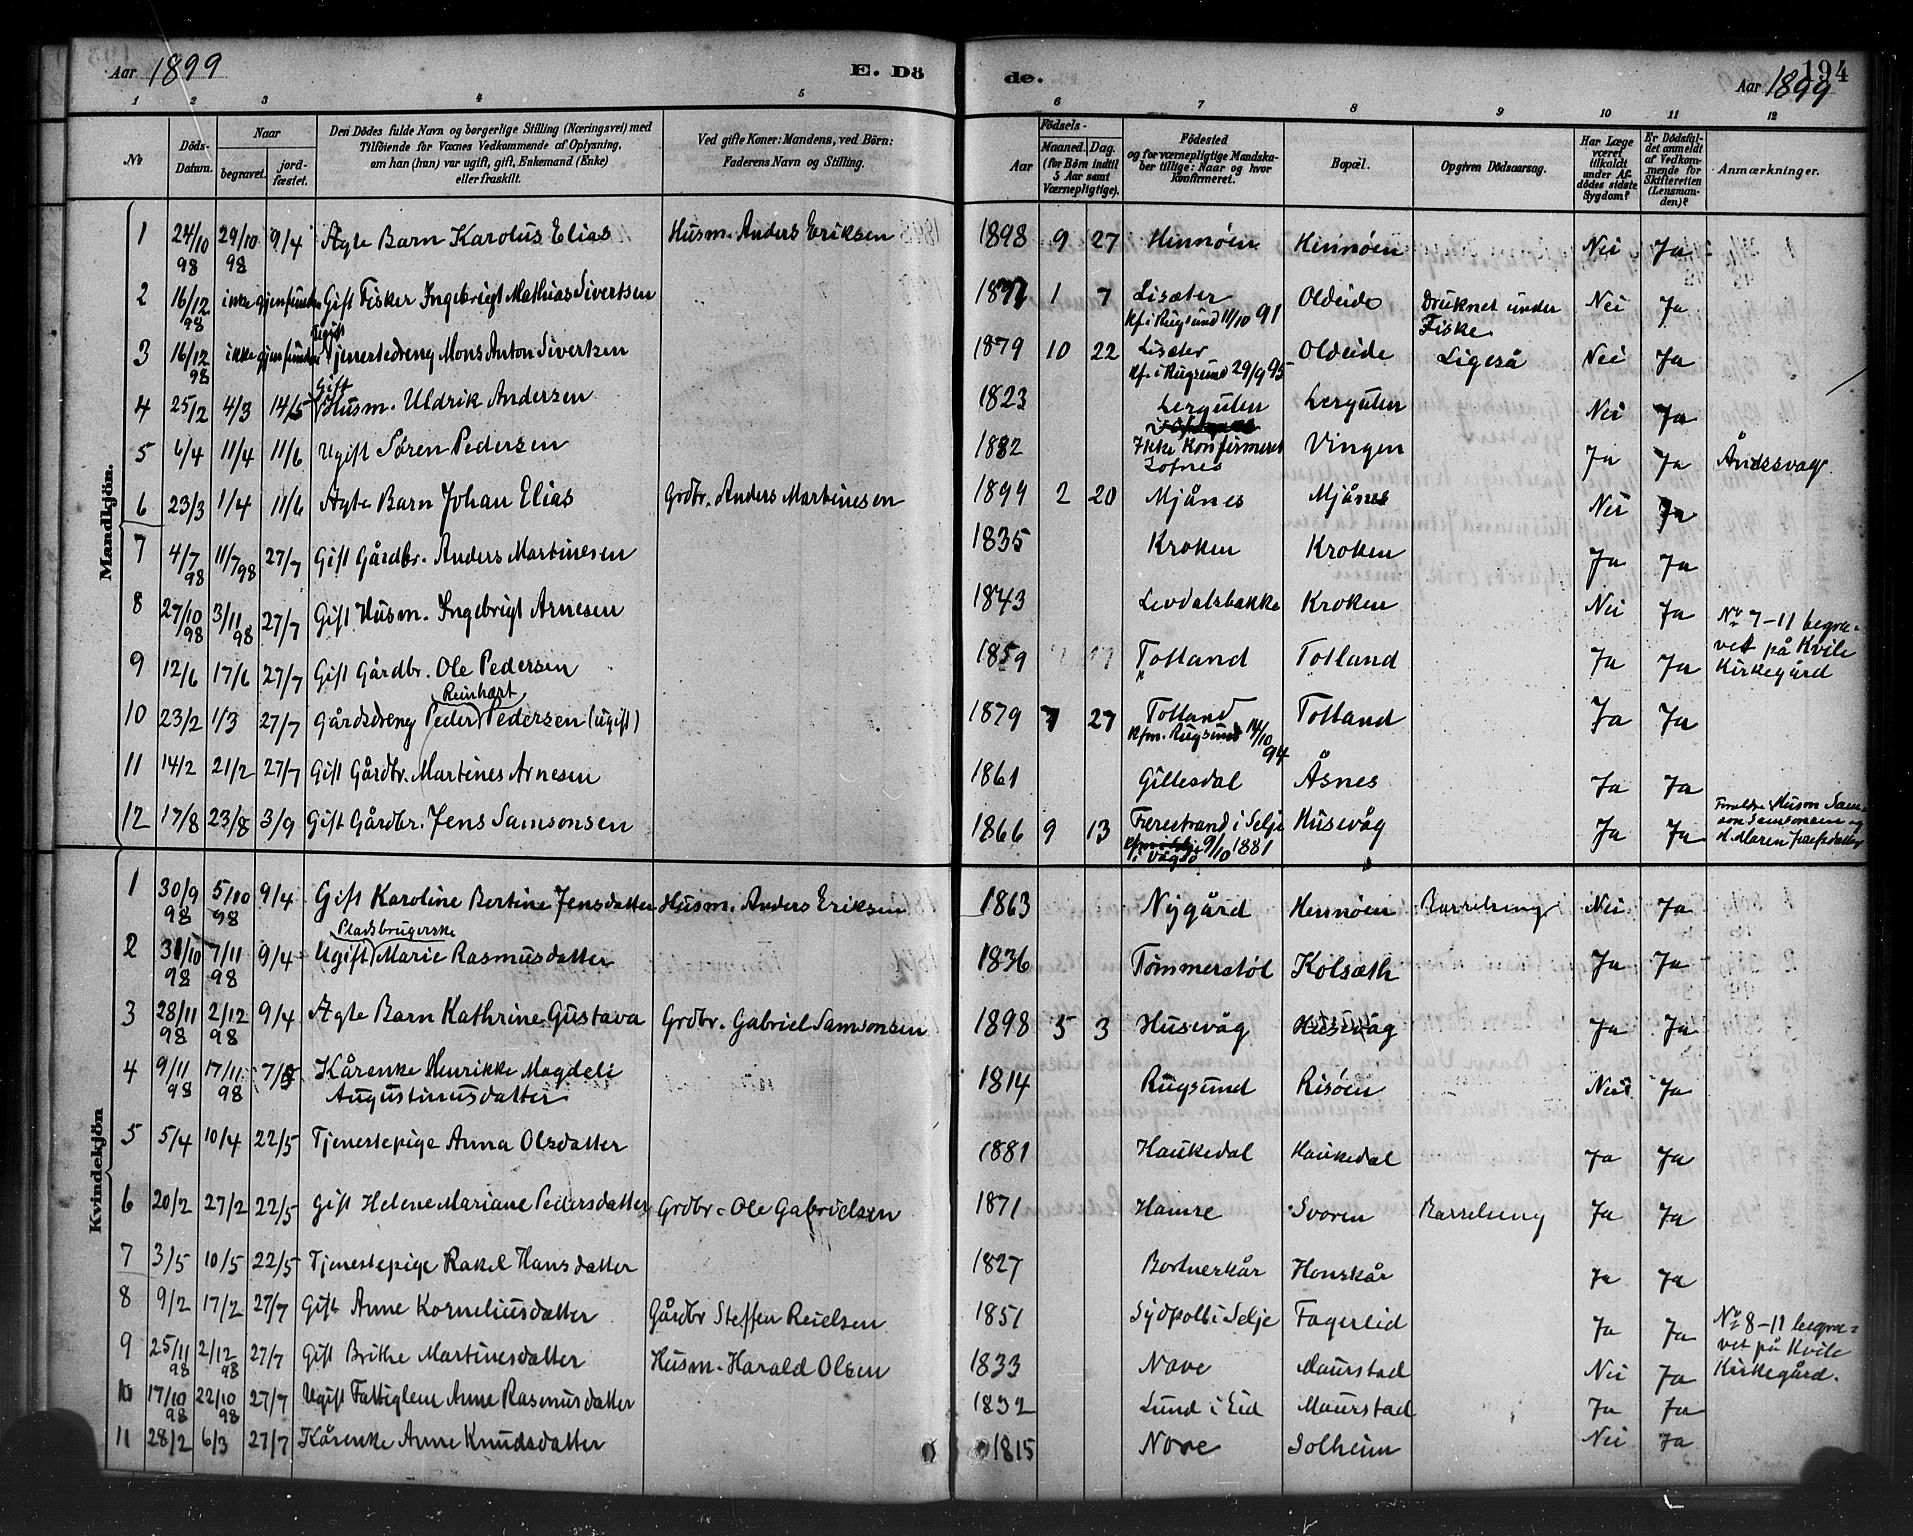 Aar 1899 E. Dö de. Aar 1899 194
1 2 3 4 5 6 7 8 9 10 11 12
№ Döds-Datum. Naar begravet. jord-fæstet. Den Dödes fulde Navn og borgerlige Stilling (Næringsvei) med Tilföiende for Voxnes Vedkommende af Oplysning, om han (hun) var ugift, gift, Enkemand (Enke) eller fraskilt. Ved gifte Koner: Mandens, ved Börn: Faderens Navn og Stilling. Födsels- Aar Maaned. Dag. (for Börn indtil 5 Aar samt Værnepligtige). Födested og for værnepligtige Mandskaber tillige: Naar og hvor konfirmeret. Bopæl. Opgiven Dödsaarsag. Har Læge været tilkaldt under Afdödes sidste Sygdom? Er Dödsfaldet anmeldt af Vedkommende for Skifteretten (Lensmanden)? Anmærkninger.
Mandkjön.
1 24/10 98 29/10 98 9/4 Ægte Barn Karolus Elias Husm. Anders Eriksen 1898 9 27 Hennöen Hennöen Nei Ja
2 16/12 98 ikke gjenfunden Gift Fisker Ingebrigt Mathias Sivertsen 1 7 Lisæter Kf. i Rugsund 11/10 91 Oldeide Druknet under Fiske Nei Ja
3 16/12 98 ikke gjenfunden Ugift Tjenestedreng Mons Anton Sivertsen 1879 10 22 Lisæter Kf. i Rugsund 29/9 95 Oldeide Ligeså Nei Ja
4 25/2 4/3 14/5 Gift Husm. Uldrik Andersen 1823 Lerguten Lerguten Nei Ja
5 6/4 11/4 11/6 Ugift Sören Pedersen 1882 Ikke Konfirmeret Vingen Ja Ja Åndssvag
6 23/3 1/4 11/6 Ægte Barn Johan Elias Grdbr. Anders Martinesen 1899 2 20 Mjånes Mjånes Nei Ja
7 4/7 98 11/7 98 27/7 Gift Gårdbr. Anders Martinesen 1835 Kroken Kroken Ja Ja
8 27/10 98 3/11 98 27/7 Gift Husm. Ingebrigt Arnesen 1843 Levdalsbakke Kroken Nei Ja Nr 7-11 begra-
9 12/6 17/6 27/7 Gift Gårdbr. Ole Pedersen 1859 Totland Totland Ja Ja vet på Kvile Kirkegård
10 23/2 1/3 27/7 Gårdsdreng Peder Reinhart Pedersen (ugift) 1879 7 27 Totland Kfm. Rugsund 14/10 94 Totland Ja Ja
11 14/2 21/2 27/7 Gift Gårdbr. Martines Arnesen 1861 Gillesdal Åsnes Ja Ja
12 17/8 23/8 3/9 Gift Gårdbr. Jens Samsonsen 1866 9 13 Færestrand i Selje i Vågsö 9/10 1881 Husevåg Ja Ja Forældre Husm Samson Samsonsen og H. Maren
Kvindekjön
1 30/9 98 5/10 98 9/4 Gift Karoline Bertine Jensdatter Husm. Anders Eriksen 1863 Nygård Hennöen Barselseng Nei Ja
2 31/10 98 7/11 98 9/4 Ugift Pladsbrugerske Marie Rasmusdatter 1836 Tömmerstöl Kolsæth Ja Ja
3 28/11 98 2/12 98 9/4 Ægte Barn Kathrine Gustava Grdbr. Gabriel Samsonsen 1898 5 3 Husevåg Husevåg Ja Ja
4 9/11 98 17/11 98 7/5 Kårenke Henrikke Magdeli Augustinusdatter 1814 Rugsund Risöen Nei Ja
5 5/4 10/4 22/5 Tjenestepige Anna Olsdatter 1881 Haukedal Haukedal Ja Ja
6 20/2 27/2 22/5 Gift Helene Mariane Pedersdatter Grdbr. Ole Gabrielsen 1871 Hamre Svoren Barselseng Ja Ja
7 3/5 10/5 22/5 Tjenestepige Rakel Hansdatter 1827 Bortnerkår Honskår Ja Ja
8 9/2 17/2 27/7 Gift Anne Korneliusdatter Gårdbr Steffen Reielsen 1851 Sydpoll i Selje Fagerlid Ja Ja Nr 8-11 begra-
9 25/11 98 2/12 98 27/7 Gift Brithe Martinesdatter Husm. Harald Olsen 1833 Nave Maurstad Nei Ja vet på Kvile Kirkegård.
10 17/10 98 22/10 98 27/7 Ugift Fattiglem Anne Rasmusdatter 1832 Lund i Eid Maurstad Ja Ja
11 28/2 6/3 27/7 Kårenke Anne Knudsdatter 1815 Nave Solheim Nei Ja